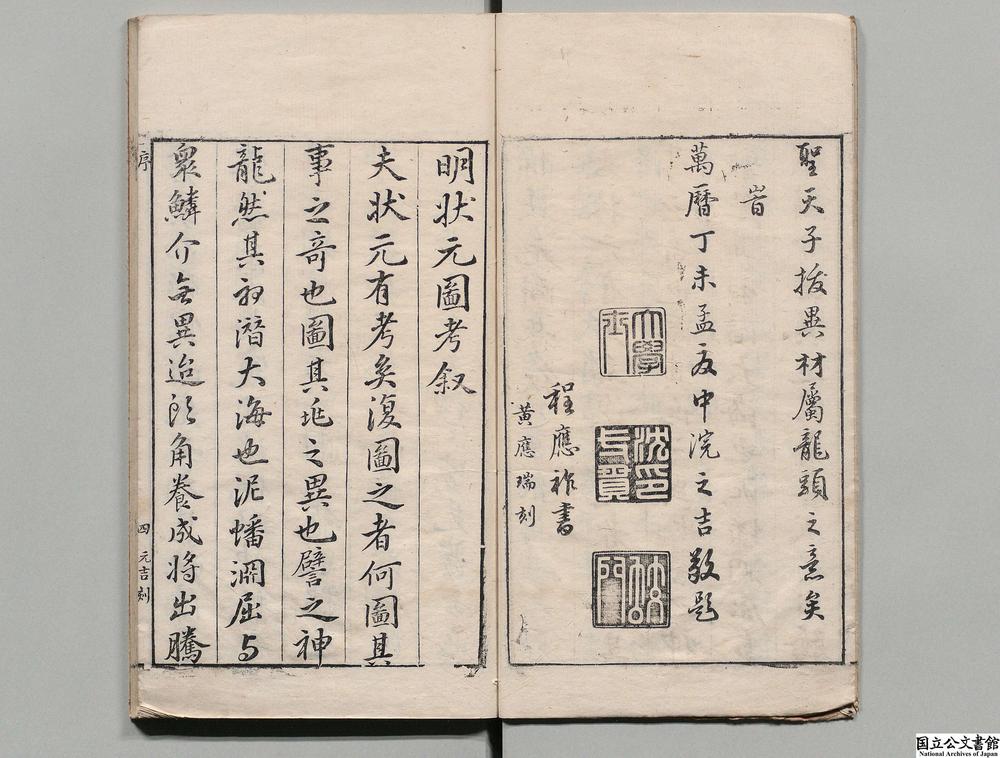 聖天子拔異材屬龍頭之意矣
旹
萬曆丁未孟夏中浣之吉敬題
大學士
沈一貫印
程應祚書
黃應瑞刻
明狀元圖考叙
夫狀元有考矣復圖之者何圖其
事之奇也圖其兆之異也譬之神
龍然其初潛大海也泥蟠淵屈与
衆鱗介無異迨頭角養成將出騰
序
四
元吉刻
国立公文書館
National Archives of Japan